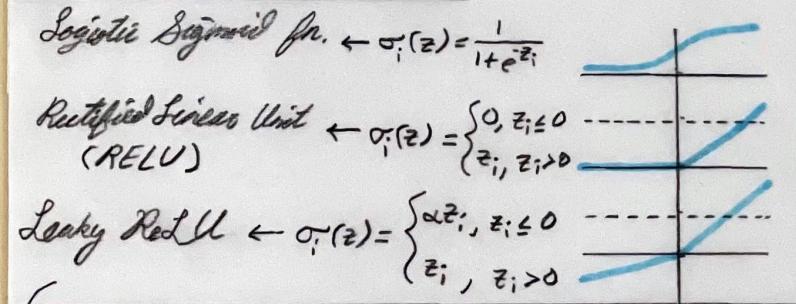 Logistic Sigmoid fn. ← σᵢ(z) = 1/(1+e^-zᵢ)
Rectified Linear Unit ← σᵢ(z) = {0, zᵢ≤0
(RELU) zᵢ, zᵢ>0
Leaky ReLU ← σᵢ(z) = {αzᵢ, zᵢ≤0
zᵢ, zᵢ>0